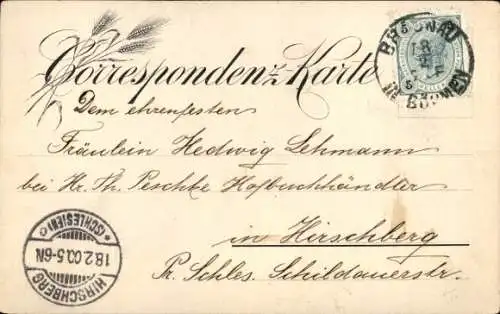 Correspondenz-Karte
BRAUNAU
IN BÖHMEN
Dem ehrenfesten
Fräulein Hedwig Lehmann
bei Hr. Th. Peschke Hofbuchhändler
in Hirschberg
Pr. Schles. Schildauerstr.
HIRSCHBERG
18.2.00.5-6N.
*(SCHLESIEN) c